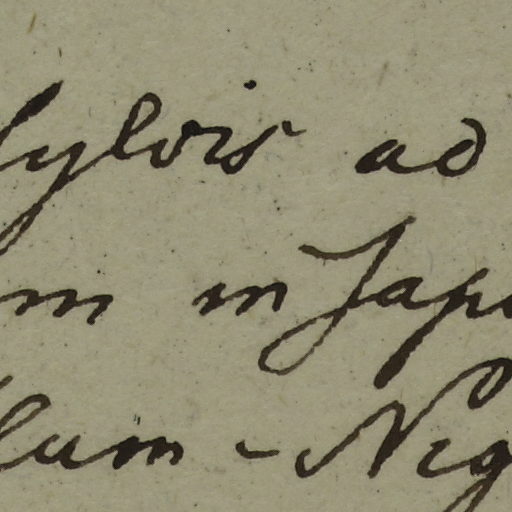 sylvis ad
m in Japo
lum - Nig